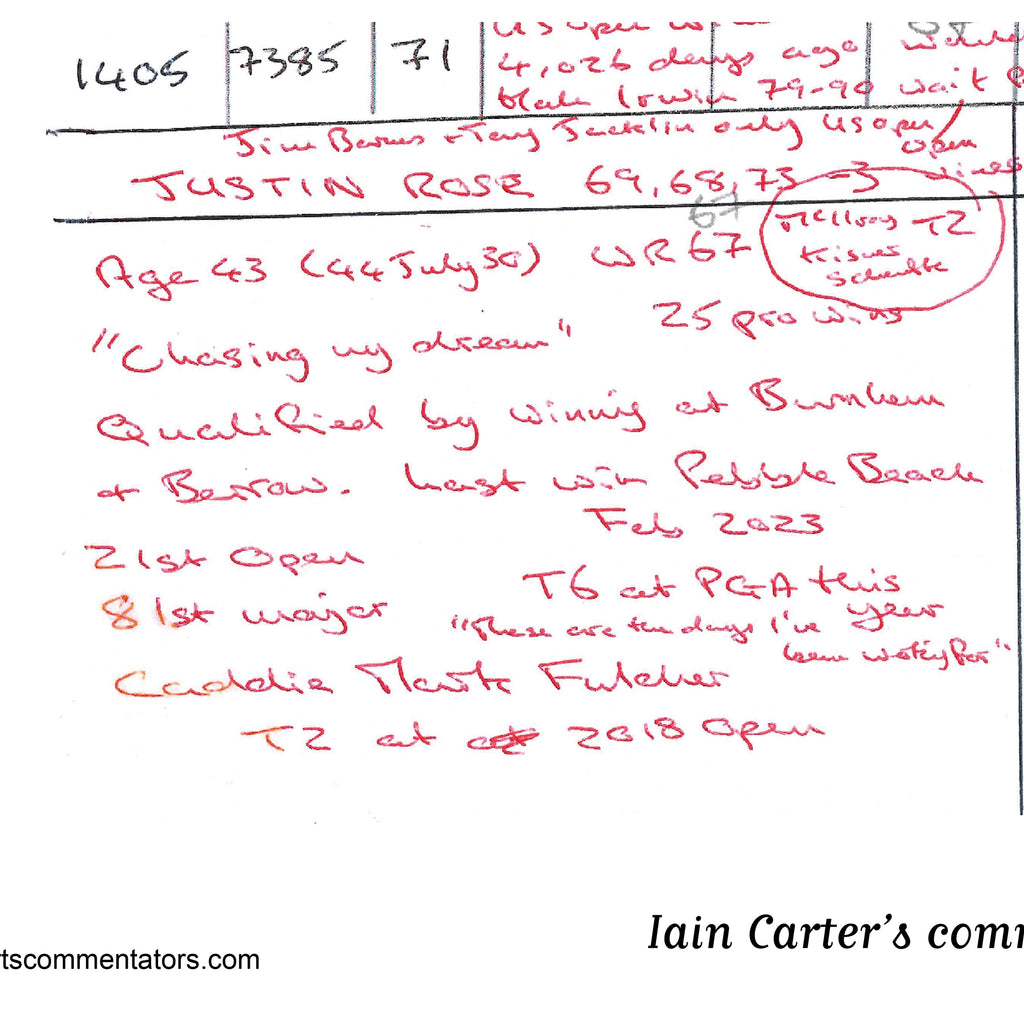 1405 7385 71
US open
4,026 days ago
Hale Irwin 79-90 wait
Jim Barnes + Tony Jacklin only US open/
open
JUSTIN ROSE 69,68,73 -3 wins
67
Age 43 (44 July 30) WR 67
McIlroy T2
Kisner
Schauffele
25 pro wins
"Chasing my dream"
Qualified by winning at Burnham
+ Berrow. Last win Pebble Beach
Feb 2023
21st Open
T6 at PGA this
year
81st major
"These are the days I've
been waiting for"
Caddie Mark Fulcher
T2 at at 2018 Open
Iain Carter's comm
rtscommentators.com